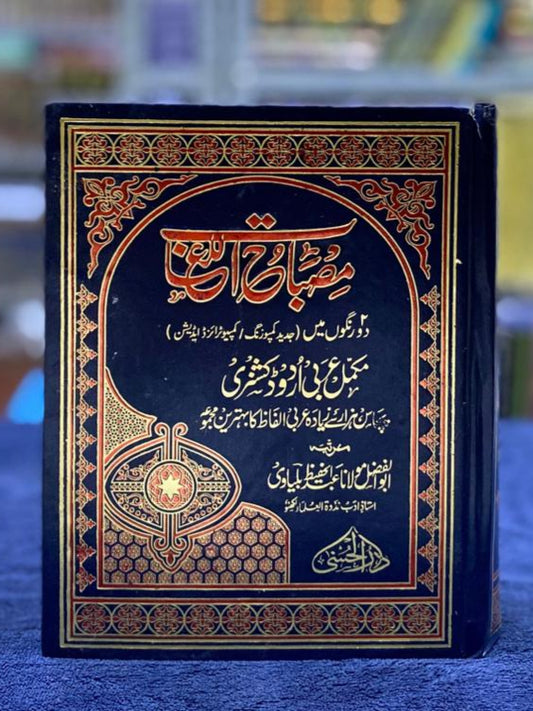 مصباح اللغات
دو رنگوں میں (جدید کمپوزنگ / کمپیوٹرائزڈ ایڈیشن)
مکمل عربی اردو ڈکشنری
پچاس ہزار سے زیادہ عربی الفاظ کا بہترین مجموعہ
مرتبہ
ابوالفضل مولانا عبدالحفیظ بلیاوی
استاذِ ادب ندوۃ العلماء لکھنؤ
دار الحسنی